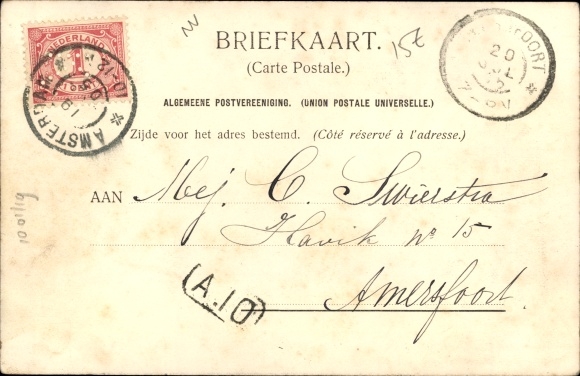 NEDERLAND
1
CENT
BRIEFKAART.
15t
(Carte Postale.)
20
AMSTERDAM
ALGEMEENE POSTVEREENIGING. (UNION POSTALE UNIVERSELLE.)
Zijde voor het adres bestemd. (Côté réservé à l'adresse.)
AAN Mej. C. Swierstra
Havik no 15
Amersfoort.
(A.10)